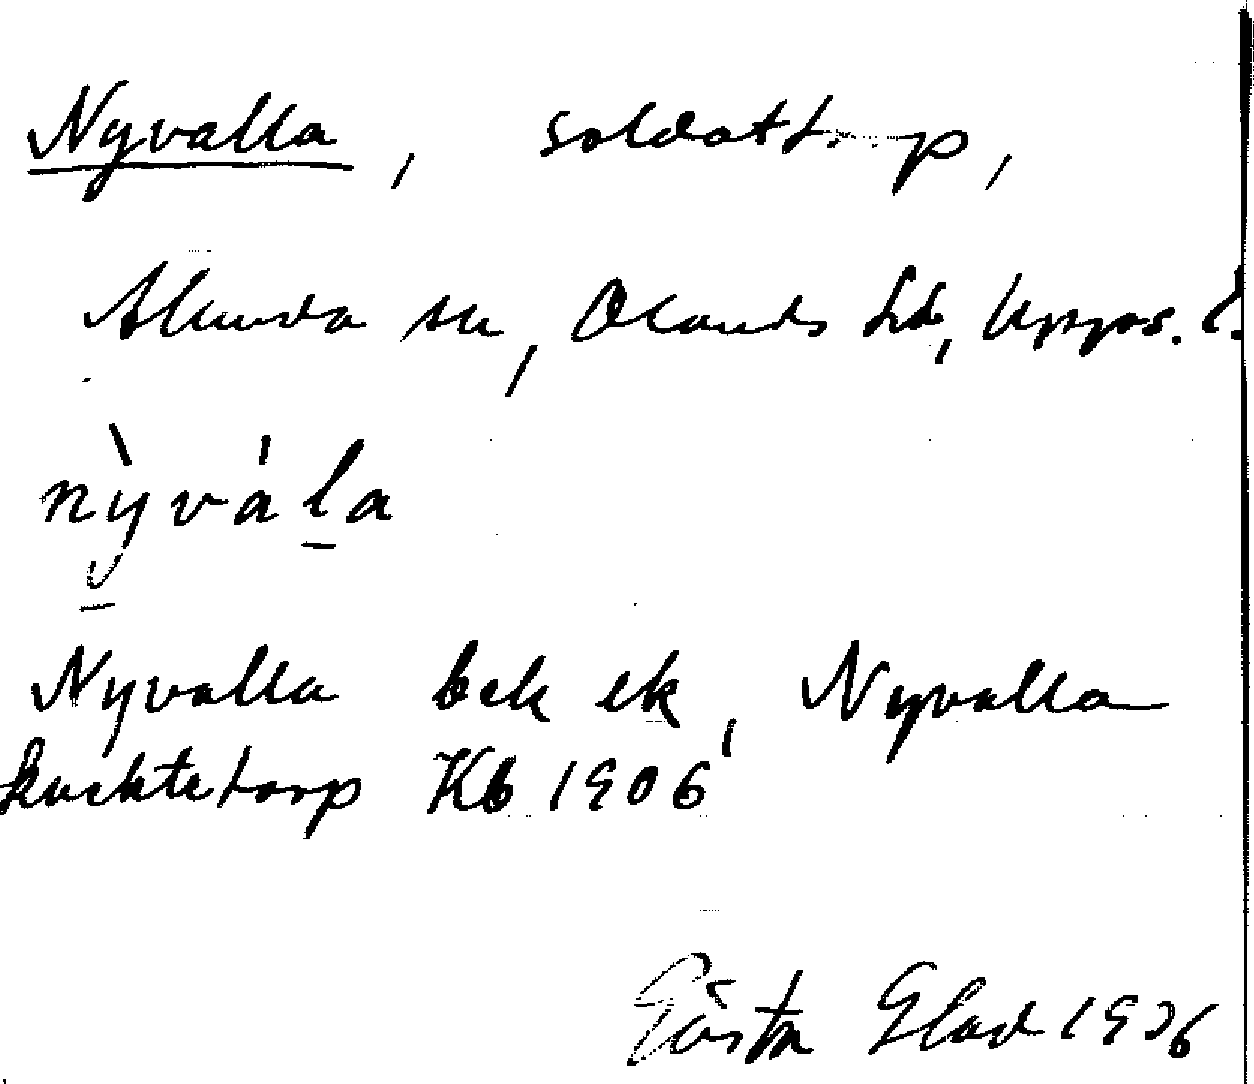 Nyvalla, soldattorp,
Alunda sn, Olands hd, Upps. l.
nỳvála
Nyvalla bek ek, Nyvalla
knektetorp Kb 1906
Gösta Glad 1936